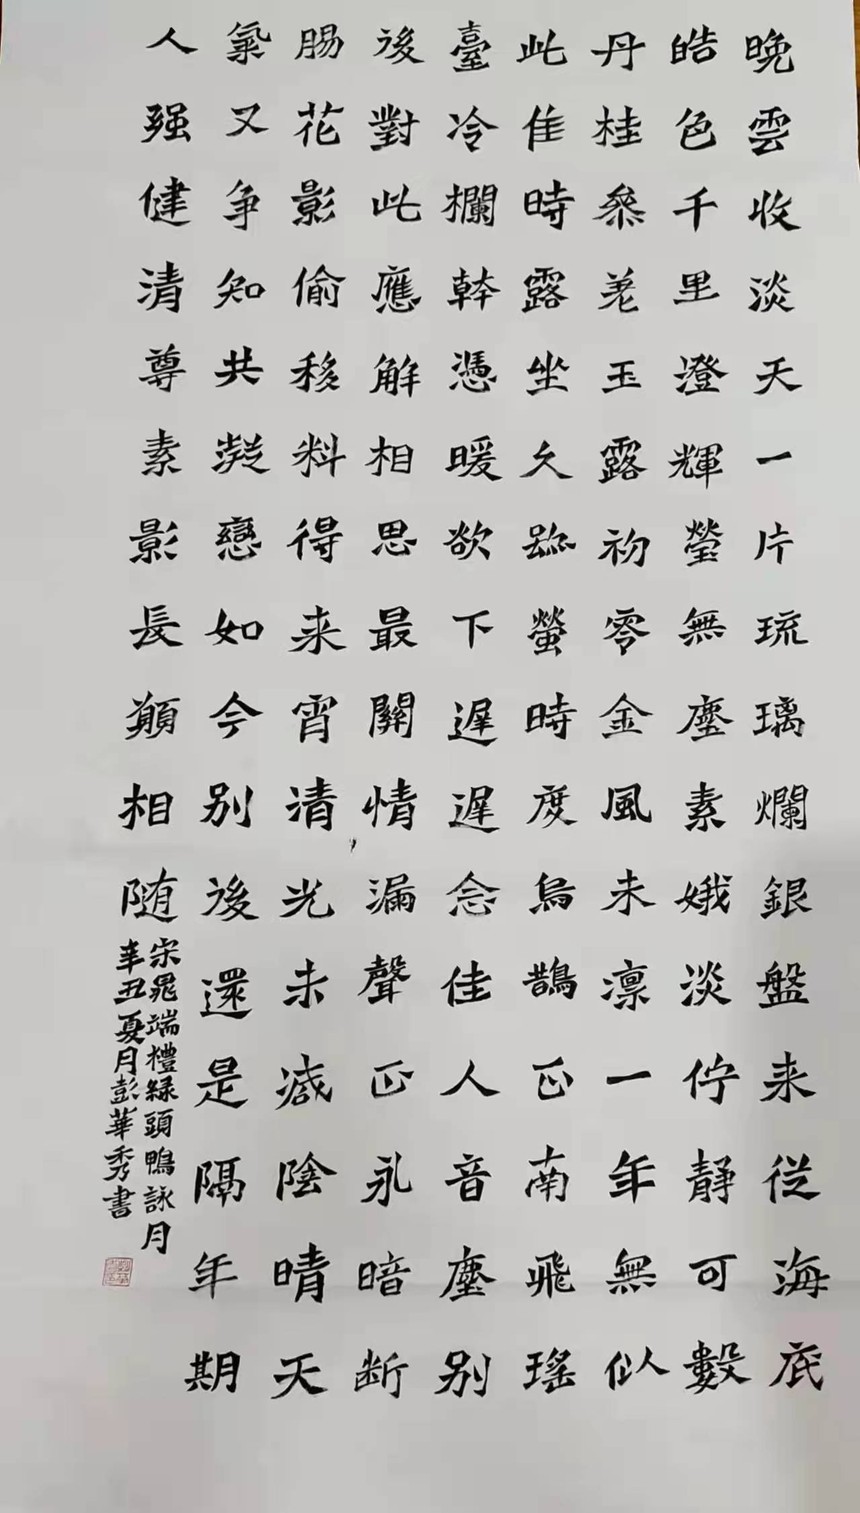 晚雲收淡天一片琉璃爛銀盤来從海底
皓色千里澄輝瑩無塵素娥淡佇静可數
丹桂叅差玉露初零金風未凛一年無似
此佳時露坐久疏螢時度烏鵲正南飛瑤
臺冷欄幹憑暖欲下遲遲念佳人音塵别
後對此應解相思最關情漏聲正永暗断
腸花影偷移料得来宵清光未减陰晴天
氣又争知共凝戀如今别後還是隔年期
人强健清尊素影長願相随
宋晁端禮緑頭鴨詠月
辛丑夏月彭華秀書